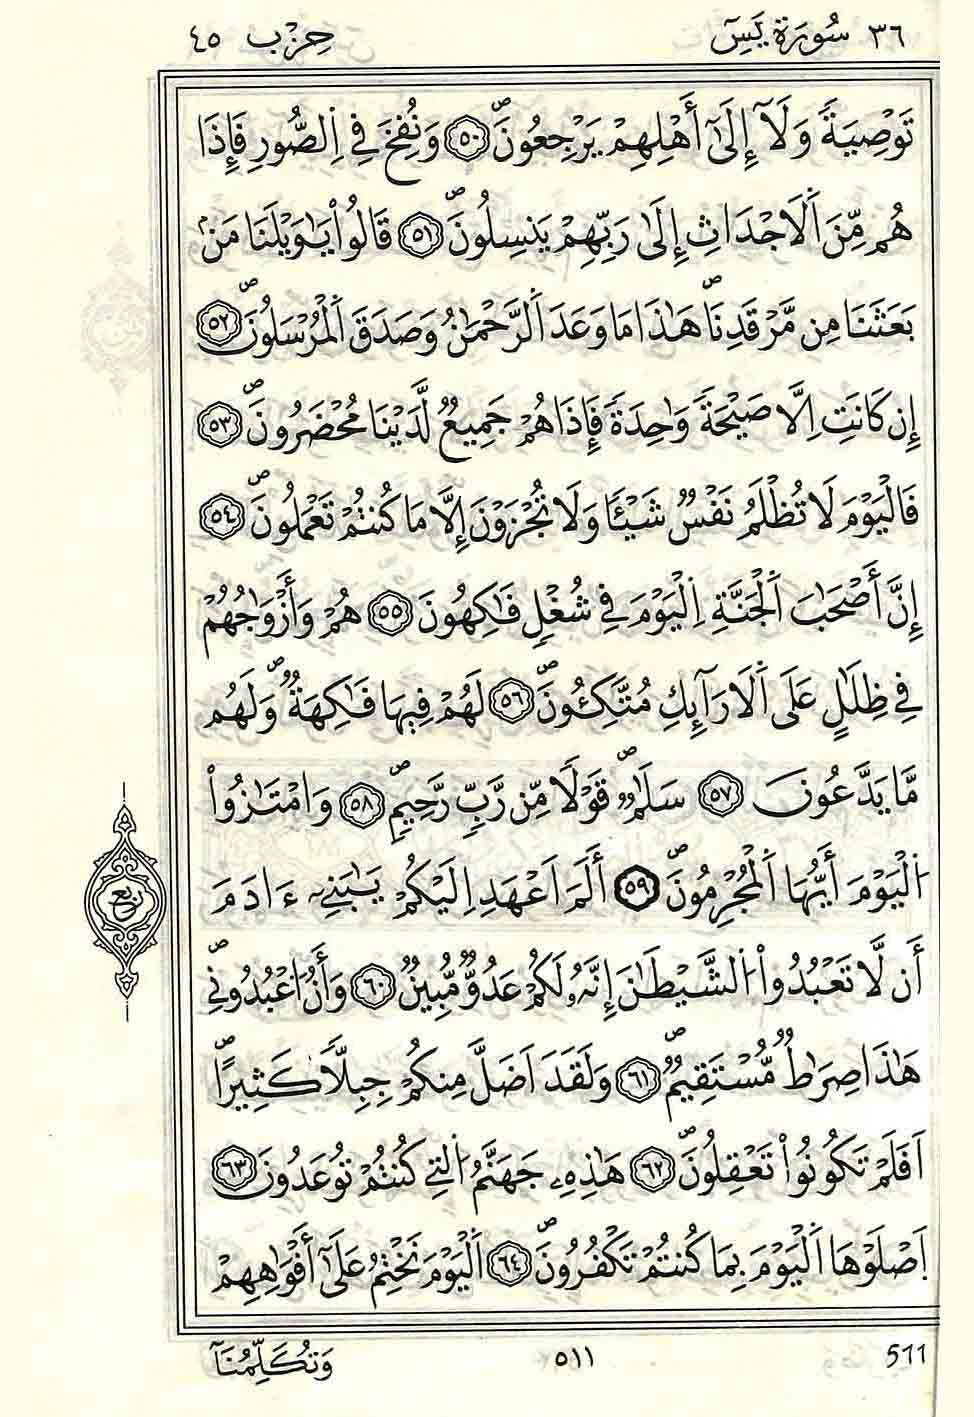 ٣٦ سُورَةُ يَسٓ حِزْب ٤٥
تَوْصِيَةٗ وَلَآ إِلَىٰٓ أَهْلِهِمْ يَرْجِعُونَۖ ٥٠ وَنُفِخَ فِے اِ۬لصُّورِ فَإِذَا
هُم مِّنَ اَ۬لَاجْدَاثِ إِلَىٰ رَبِّهِمْ يَنسِلُونَۖ ٥١ قَالُواْ يَٰوَيْلَنَا مَنۢ
بَعَثَنَا مِن مَّرْقَدِنَاۖ هَٰذَا مَا وَعَدَ اَ۬لرَّحْمَٰنُ وَصَدَقَ اَ۬لْمُرْسَلُونَۖ ٥٢
إِن كَانَتِ اِلَّا صَيْحَةٗ وَٰحِدَةٗ فَإِذَا هُمْ جَمِيعٞ لَّدَيْنَا مُحْضَرُونَۖ ٥٣
فَالْيَوْمَ لَا تُظْلَمُ نَفْسٞ شَيْـٔاٗ وَلَا تُجْزَوْنَ إِلَّا مَا كُنتُمْ تَعْمَلُونَۖ ٥٤
إِنَّ أَصْحَٰبَ اَ۬لْجَنَّةِ اِ۬لْيَوْمَ فِے شُغْلٖ فَٰكِهُونَ ٥٥ هُمْ وَأَزْوَٰجُهُمْ
فِے ظِلَٰلٍ عَلَى اَ۬لَارَآئِكِ مُتَّكِـُٔونَۖ ٥٦ لَهُمْ فِيهَا فَٰكِهَةٞۖ وَلَهُم
مَّا يَدَّعُونَ ٥٧ سَلَٰمٞۖ قَوْلاٗ مِّن رَّبّٖ رَّحِيمٖۖ ٥٨ وَامْتَٰزُواْ
اُ۬لْيَوْمَ أَيُّهَا اَ۬لْمُجْرِمُونَۖ ٥٩ أَلَمَ اَعْهَدِ اِلَيْكُمْ يَٰبَنِےٓ ءَادَمَ
أَن لَّا تَعْبُدُواْ اُ۬لشَّيْطَٰنَ إِنَّهُۥ لَكُمْ عَدُوّٞ مُّبِينٞ ٦٠ وَأَنُ اُ۟عْبُدُونِےۖ
هَٰذَا صِرَٰطٞ مُّسْتَقِيمٞۖ ٦١ وَلَقَدَ اَضَلَّ مِنكُمْ جِبِلّاٗ كَثِيراًۖ
اَفَلَمْ تَكُونُواْ تَعْقِلُونَۖ ٦٢ هَٰذِهِۦ جَهَنَّمُ اُ۬لتِے كُنتُمْ تُوعَدُونَ ٦٣
اَ۪صْلَوْهَا اَ۬لْيَوْمَ بِمَا كُنتُمْ تَكْفُرُونَۖ ٦٤ اَ۬لْيَوْمَ نَخْتِمُ عَلَىٰٓ أَفْوَٰهِهِمْ
رُبُع
وَتُكَلِّمُنَآ ٥١١ 511